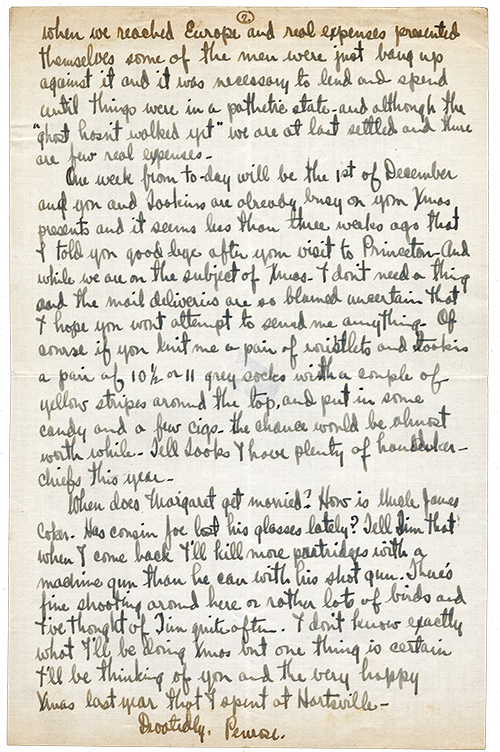 2.
when we reached Europe and real expenses presented
themselves some of the men were just bang up
against it and it was necessary to lend and spend
until things were in a pathetic state - and although the
"ghost hasn't walked yet" we are at last settled and there
are few real expenses -
One week from to-day will be the 1st of December
and you and Sookins are already busy on your Xmas
presents and it seems less than three weeks ago that
I told you good bye after your visit to Princeton - And
while we are on the subject of Xmas - I don't need a thing
and the mail deliveries are so blamed uncertain that
I hope you wont attempt to send me anything - Of
course if you knit me a pair of wristlets and Sookins
a pair of 10 1/2 or 11 grey socks with a couple of
yellow stripes around the top, and put in some
candy and a few cigs - the chance would be almost
worth while - Tell Sooks I have plenty of handker-
chiefs this year -
When does Margaret get married? How is Uncle James
Coker. Has cousin Joe lost his glasses lately? Tell Jim that
when I come back I'll kill more partridges with a
machine gun than he can with his shot gun. There's
fine shooting around here or rather lots of birds and
I've thought of Jim quite often. I don't know exactly
what I'll be doing Xmas but one thing is certain
I'll be thinking of you and the very happy
Xmas last year that I spent at Hartsville -
Devotedly, Penrose.